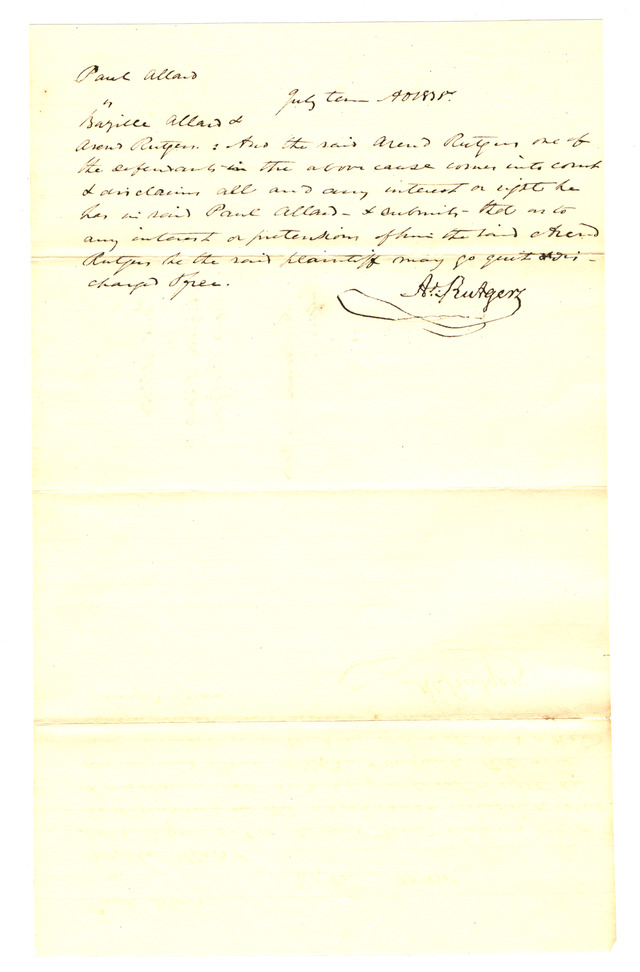 Paul Allard
"
July term AD 1838.
Bazille Allard &
Arend Rutgers. : And the said Arend Rutgers one of
the defendants in the above cause comes into court
& disclaims all and any interest or right he
has in said Paul Allard - & submits - that as to
any interest or pretensions of him the said Arend
Rutgers he the said plaintiff may go quit & dis-
charged & free.
At. Rutgers